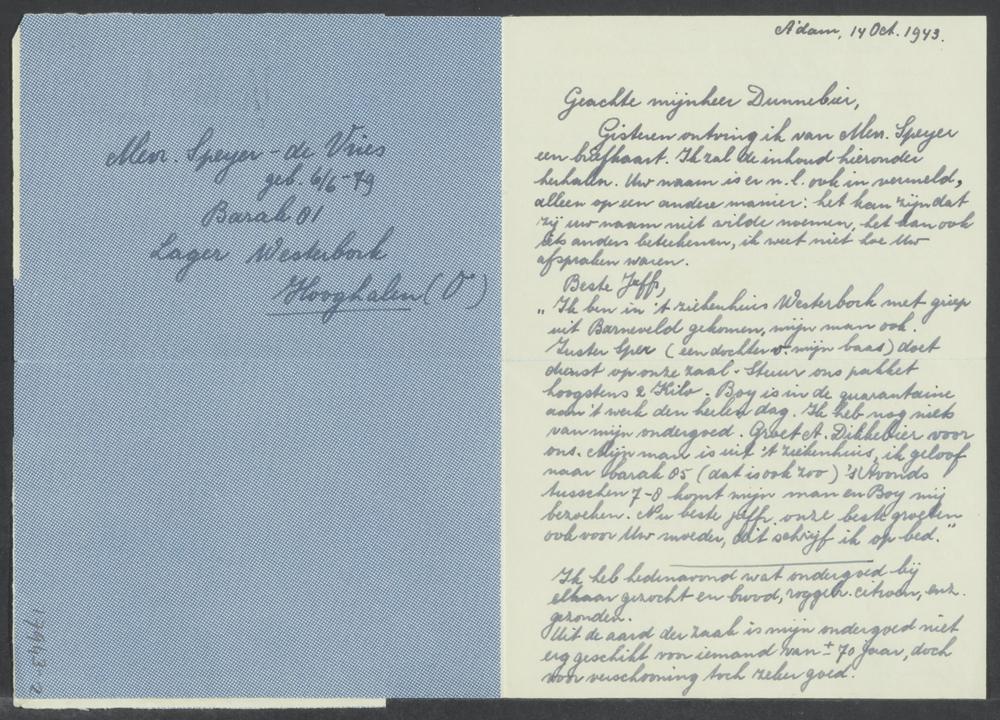 Mevr. Speyer - de Vries
geb. 6/6 - 79
Barak 81
Lager Westerbork
Hooghalen (O)
17943-2
A'dam, 14 Oct. 1943.
Geachte mijnheer Dunnebier,
Gisteren ontving ik van Mevr. Speyer
een briefkaart. Ik zal de inhoud hieronder
herhalen. Uw naam is er n.l. ook in vermeld,
alleen op een andere manier: het kan zijn dat
zij uw naam niet wilde noemen, het kan ook
iets anders beteekenen, ik weet niet hoe Uw
afspraken waren.
Beste Juff,
"Ik ben in 't ziekenhuis Westerbork met griep
uit Barneveld gekomen, mijn man ook.
Zuster Spex (een dochter v. mijn baas) doet
dienst op onze zaal - Stuur ons pakket
hoogstens 2 Kilo. Boy is in de quarantaine
aan 't werk den heelen dag. Ik heb nog niets
van mijn ondergoed. Groet A. Dikkebier voor
ons. Mijn man is uit 't ziekenhuis, ik geloof
naar barak 85 (dat is ook zoo) 's Avonds
tusschen 7-8 komt mijn man en Boy mij
bezoeken. Nu beste juffr. onze beste groeten
ook voor Uw moeder, dit schrijf ik op bed."
Ik heb hedenavond wat ondergoed bij
elkaar gezocht en brood, roggebr. citroen, enz.
gezonden.
Uit de aard der zaak is mijn ondergoed niet
erg geschikt voor iemand van ± 70 jaar, doch
voor verschooning toch zeker goed.